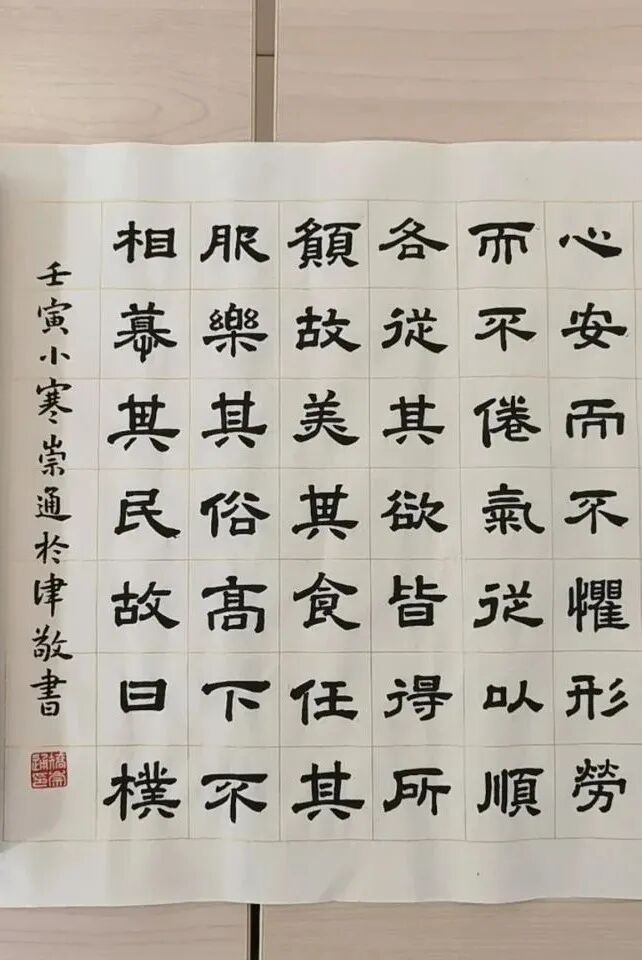 心安而不懼形勞
而不倦氣從以順
各從其欲皆得所
願故美其食任其
服樂其俗高下不
相慕其民故曰樸
壬寅小寒崇通於津敬書